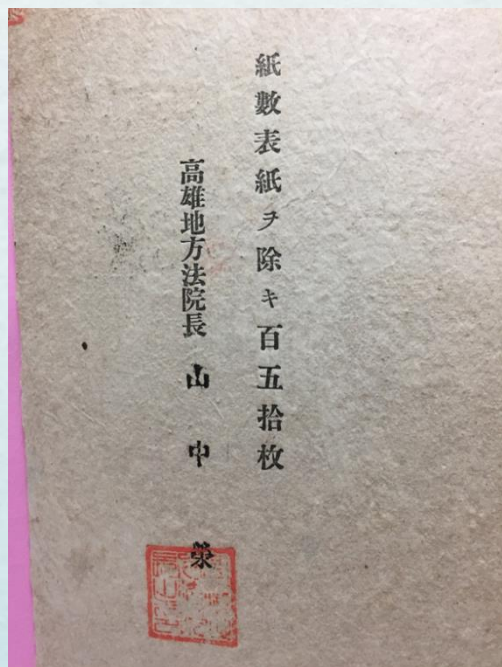 紙數表紙ヲ除キ百五拾枚
高雄地方法院長　山中